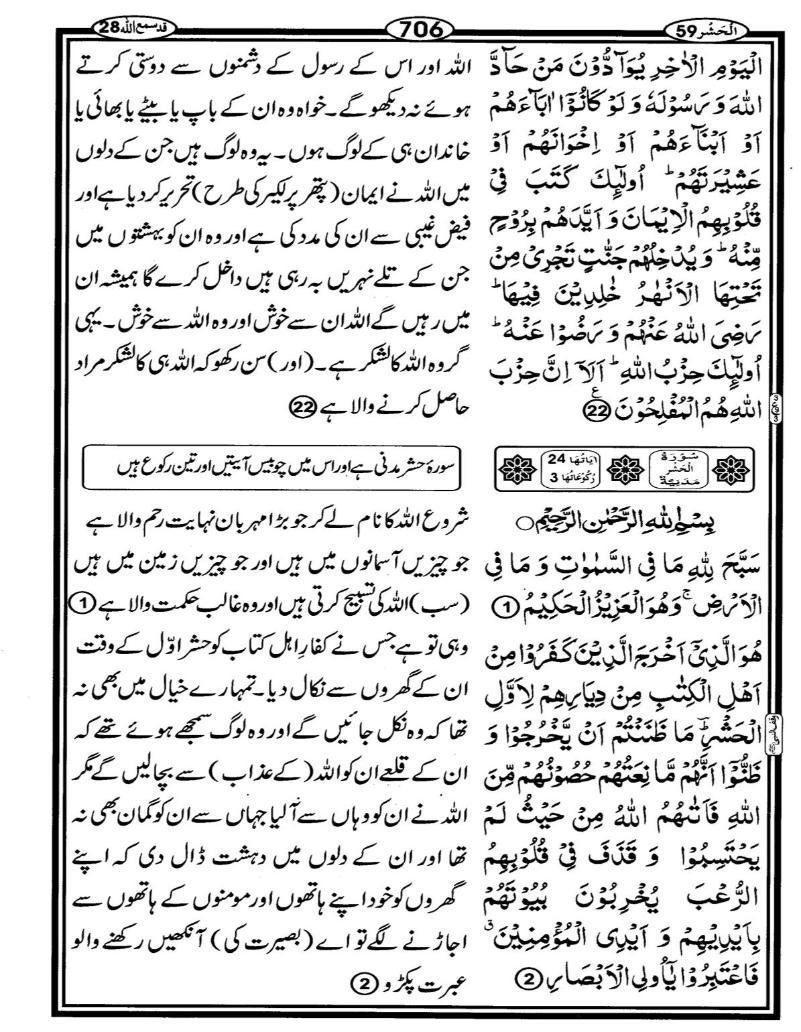 الْحَشْر 59
706
قد سمع اللہ 28
الْيَوْمِ الْاٰخِرِ يُوَآدُّوْنَ مَنْ حَآدَّ
اللّٰهَ وَ رَسُوْلَهٗ وَ لَوْ كَانُوْۤا اٰبَآءَهُمْ
اَوْ اَبْنَآءَهُمْ اَوْ اِخْوَانَهُمْ اَوْ
عَشِيْرَتَهُمْ ؕ اُولٰٓئِكَ كَتَبَ فِيْ
قُلُوْبِهِمُ الْاِيْمَانَ وَ اَيَّدَهُمْ بِرُوْحٍ
مِّنْهُ ؕ وَ يُدْخِلُهُمْ جَنّٰتٍ تَجْرِيْ مِنْ
تَحْتِهَا الْاَنْهٰرُ خٰلِدِيْنَ فِيْهَا ؕ
رَضِيَ اللّٰهُ عَنْهُمْ وَ رَضُوْا عَنْهُ ؕ
اُولٰٓئِكَ حِزْبُ اللّٰهِ ؕ اَلَاۤ اِنَّ حِزْبَ
اللّٰهِ هُمُ الْمُفْلِحُوْنَ ع 22
سُوْرَةُ الْحَشْر مَدَنِيَّةٌ
اٰيَاتُهَا 24
رُكُوْعَاتُهَا 3
بِسْمِ اللّٰهِ الرَّحْمٰنِ الرَّحِيْمِ ○
سَبَّحَ لِلّٰهِ مَا فِي السَّمٰوٰتِ وَ مَا فِي
الْاَرْضِ ۚ وَ هُوَ الْعَزِيْزُ الْحَكِيْمُ 1
هُوَ الَّذِيْۤ اَخْرَجَ الَّذِيْنَ كَفَرُوْا مِنْ
اَهْلِ الْكِتٰبِ مِنْ دِيَارِهِمْ لِاَوَّلِ
الْحَشْرِ ؔؕ مَا ظَنَنْتُمْ اَنْ يَّخْرُجُوْا وَ
ظَنُّوْۤا اَنَّهُمْ مَّا نِعَتُهُمْ حُصُوْنُهُمْ مِّنَ
اللّٰهِ فَاَتٰىهُمُ اللّٰهُ مِنْ حَيْثُ لَمْ
يَحْتَسِبُوْا وَ قَذَفَ فِيْ قُلُوْبِهِمُ
الرُّعْبَ يُخْرِبُوْنَ بُيُوْتَهُمْ
بِاَيْدِيْهِمْ وَ اَيْدِي الْمُؤْمِنِيْنَ ۗ
فَاعْتَبِرُوْا يٰۤاُولِي الْاَبْصَارِ 2
اللہ اور اس کے رسول کے دشمنوں سے دوستی کرتے
ہوئے نہ دیکھو گے۔ خواہ وہ ان کے باپ یا بیٹے یا بھائی یا
خاندان ہی کے لوگ ہوں۔ یہ وہ لوگ ہیں جن کے دلوں
میں اللہ نے ایمان (پتھر پر لکیر کی طرح) تحریر کر دیا ہے اور
فیض غیبی سے ان کی مدد کی ہے اور وہ ان کو بہشتوں میں
جن کے تلے نہریں بہ رہی ہیں داخل کرے گا ہمیشہ ان
میں رہیں گے اللہ ان سے خوش اور وہ اللہ سے خوش۔ یہی
گروہ اللہ کا لشکر ہے۔ (اور) سن رکھو کہ اللہ ہی کا لشکر مراد
حاصل کرنے والا ہے 22
سورۂ حشر مدنی ہے اور اس میں چوبیس آیتیں اور تین رکوع ہیں
شروع اللہ کا نام لے کر جو بڑا مہربان نہایت رحم والا ہے
جو چیزیں آسمانوں میں ہیں اور جو چیزیں زمین میں ہیں
(سب) اللہ کی تسبیح کرتی ہیں اور وہ غالب حکمت والا ہے 1
وہی تو ہے جس نے کفارِ اہل کتاب کو حشر اوّل کے وقت
ان کے گھروں سے نکال دیا۔ تمہارے خیال میں بھی نہ
تھا کہ وہ نکل جائیں گے اور وہ لوگ سمجھے ہوئے تھے کہ
ان کے قلعے ان کو اللہ (کے عذاب) سے بچا لیں گے مگر
اللہ نے ان کو وہاں سے آ لیا جہاں سے ان کو گمان بھی نہ
تھا اور ان کے دلوں میں دہشت ڈال دی کہ اپنے
گھروں کو خود اپنے ہاتھوں اور مومنوں کے ہاتھوں سے
اجاڑنے لگے تو اے (بصیرت کی) آنکھیں رکھنے والو
عبرت پکڑو 2